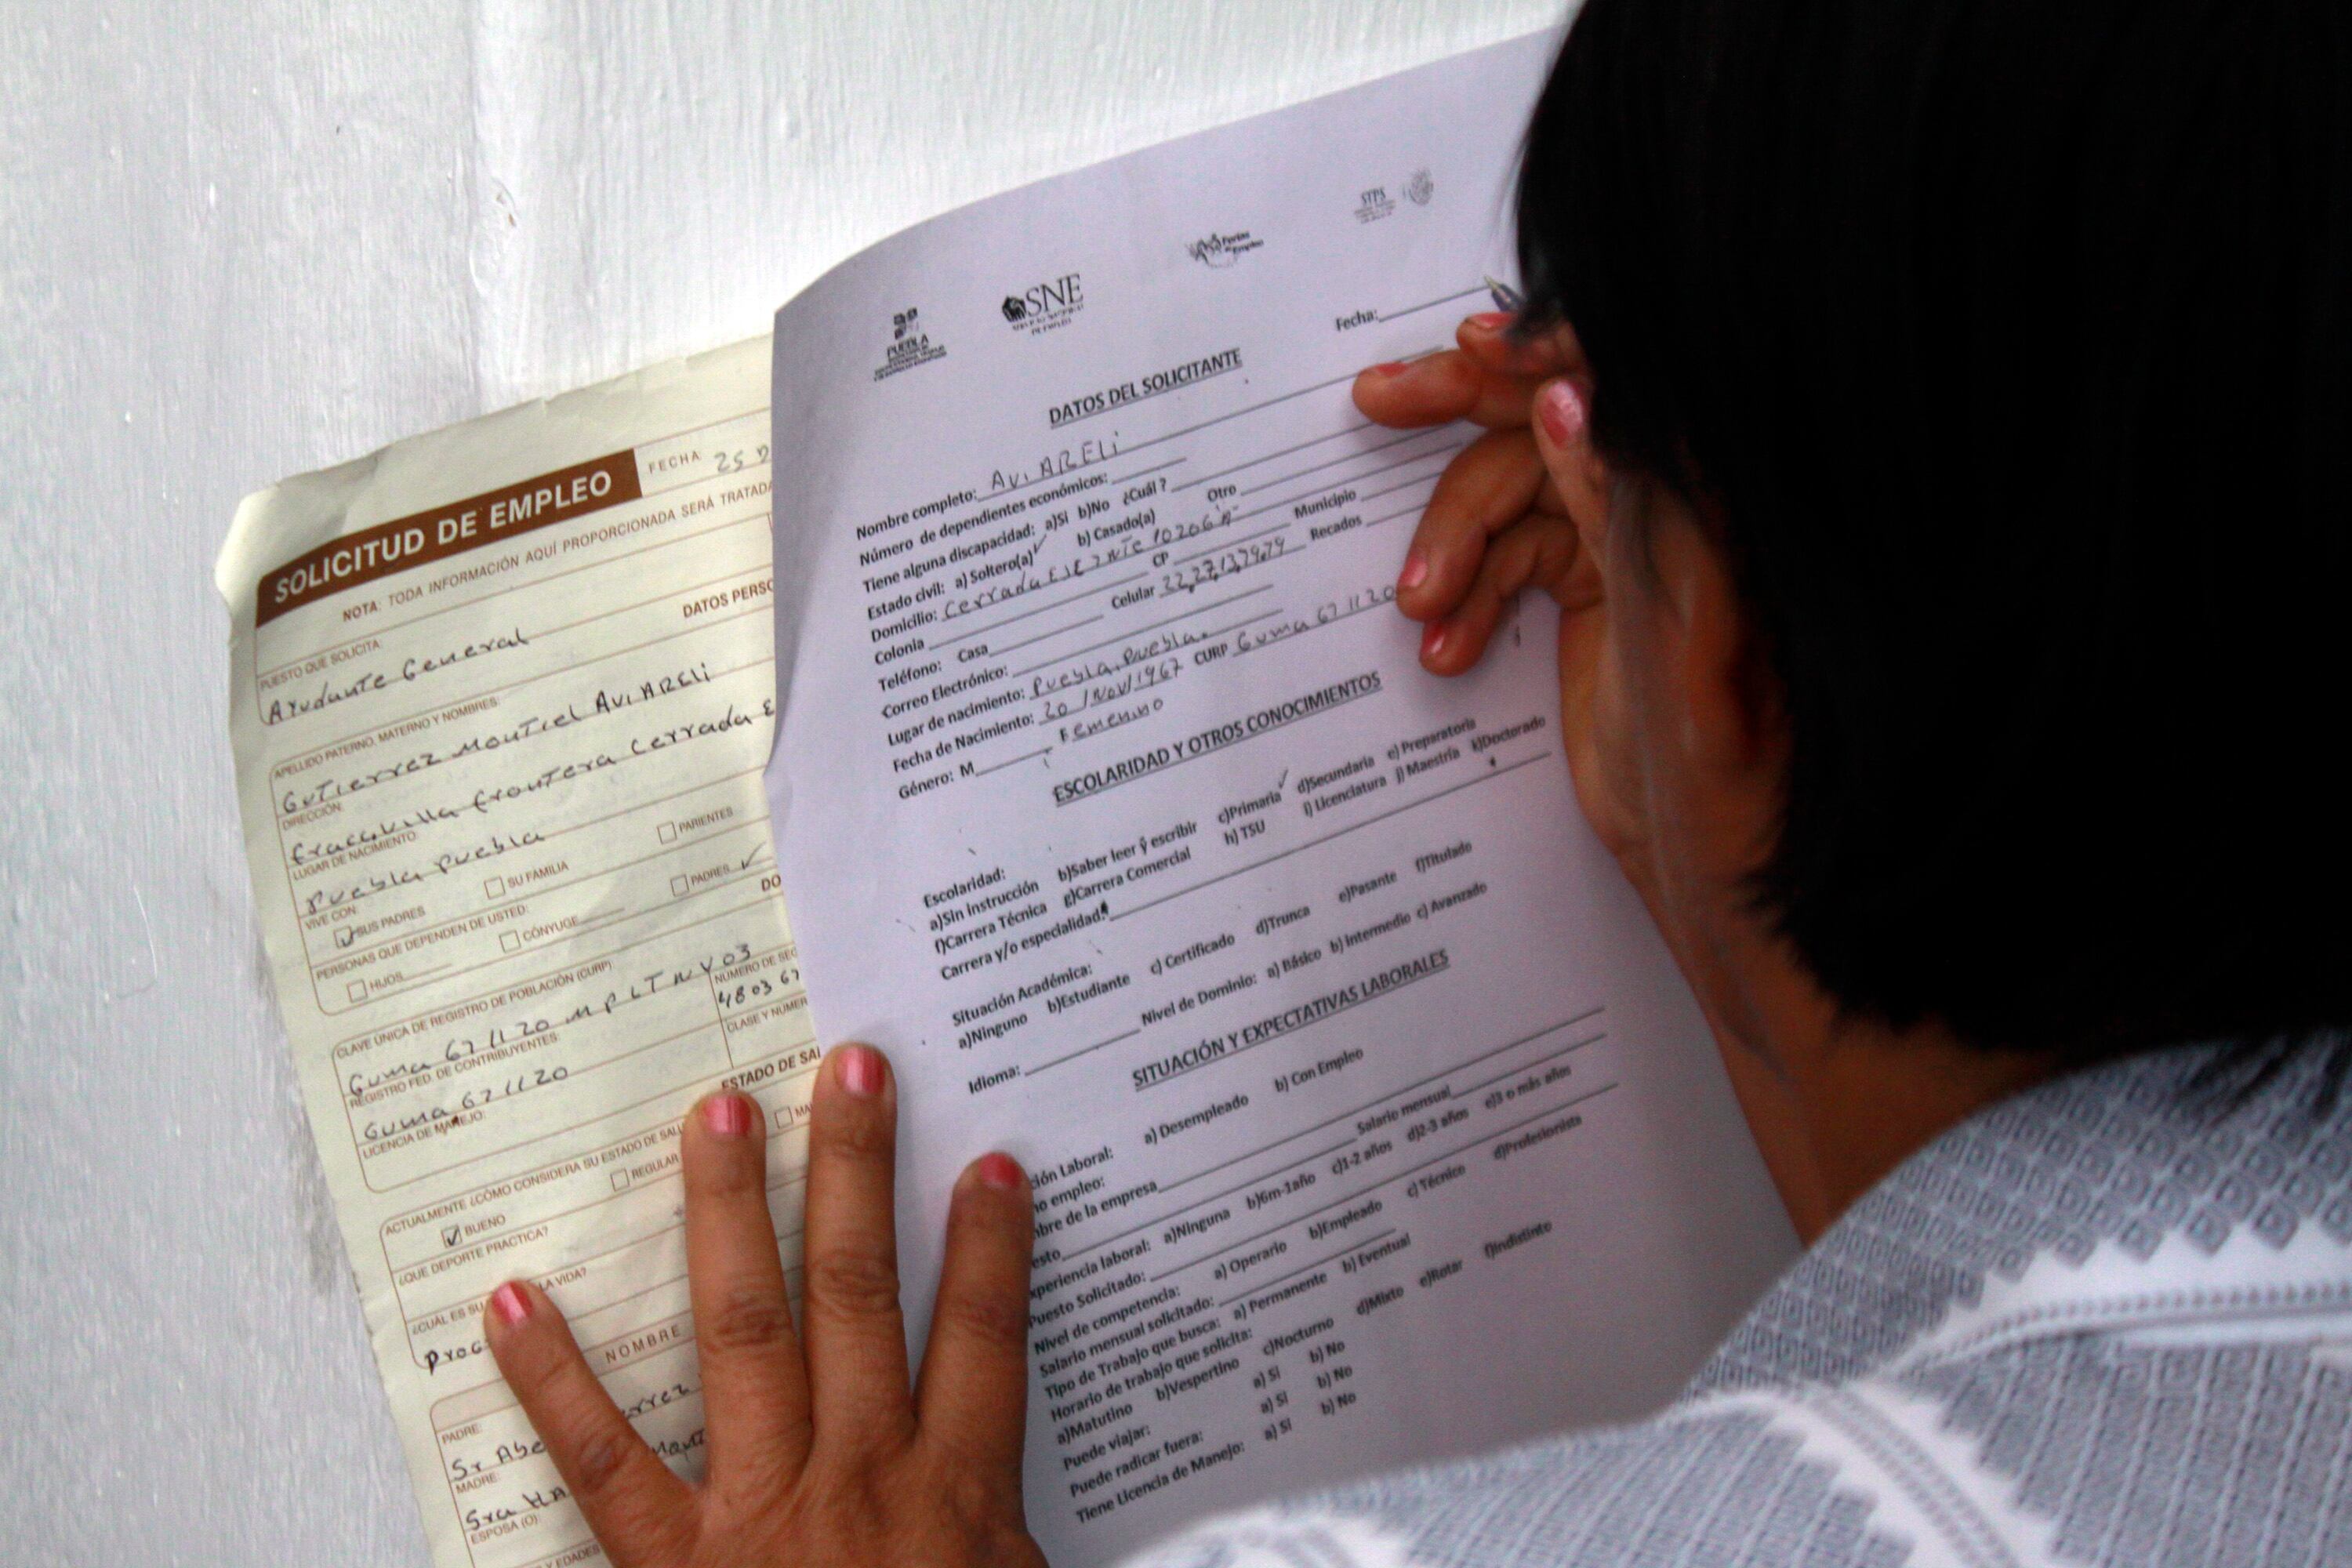 SOLICITUD DE EMPLEO
FECHA: 25 D
NOTA: TODA INFORMACIÓN AQUÍ PROPORCIONADA SERÁ TRATADA
DATOS PERSO
PUESTO QUE SOLICITA:
Ayudante General
APELLIDO PATERNO, MATERNO Y NOMBRES:
GuTierrez MonTiel Avi ARELi
DIRECCIÓN:
fraccvilla fronTera Cerrada E
LUGAR DE NACIMIENTO:
puebla puebla
VIVE CON:
SUS PADRES SU FAMILIA PARIENTES
PERSONAS QUE DEPENDEN DE USTED:
HIJOS CÓNYUGE PADRES
DO
CLAVE ÚNICA DE REGISTRO DE POBLACIÓN (CURP)
Guma 671120 MPLTNV03
NÚMERO DE SEG
4803 67
REGISTRO FED. DE CONTRIBUYENTES:
Guma 671120
CLASE Y NÚMER
LICENCIA DE MANEJO:
ESTADO DE SAL
ACTUALMENTE ¿CÓMO CONSIDERA SU ESTADO DE SALU
BUENO REGULAR MA
¿QUE DEPORTE PRACTICA?
¿CUÁL ES SU LA VIDA?
prog
NOMBRE
PADRE:
Sr Abe rrez
MADRE:
Sra HA monT
ESPOSA (O):
Y EDADES
PUEBLA
SNE
Ferias de Empleo
STPS
Fecha:
DATOS DEL SOLICITANTE
Nombre completo: Avi ARELi
Número de dependientes económicos:
Tiene alguna discapacidad: a)Sí b)No ¿Cuál?
Estado civil: a) Soltero(a) b) Casado(a) Otro
Domicilio: Cerrada ELE2NTE 10206"A"
Colonia CP Municipio
Teléfono: Casa Celular 22,27,13,79,79 Recados
Correo Electrónico:
Lugar de nacimiento: puebla, puebla.
Fecha de Nacimiento: 20/Nov/1967 CURP Guma 671120
Género: M Femenino
ESCOLARIDAD Y OTROS CONOCIMIENTOS
Escolaridad:
a)Sin instrucción b)Saber leer y escribir c)Primaria d)Secundaria e) Preparatoria
f)Carrera Técnica g)Carrera Comercial h) TSU i) Licenciatura j) Maestría k)Doctorado
Carrera y/o especialidad:
Situación Académica:
a)Ninguno b)Estudiante c) Certificado d)Trunca e)Pasante f)Titulado
Idioma: Nivel de Dominio: a) Básico b) Intermedio c) Avanzado
SITUACIÓN Y EXPECTATIVAS LABORALES
ción Laboral: a) Desempleado b) Con Empleo
no empleo:
mbre de la empresa Salario mensual
esto
xperiencia laboral: a)Ninguna b)6m-1año c)1-2 años d)2-3 años e)3 o más años
Puesto Solicitado:
Nivel de competencia: a) Operario b)Empleado c) Técnico d)Profesionista
Salario mensual solicitado:
Tipo de Trabajo que busca: a) Permanente b) Eventual
Horario de trabajo que solicita:
a)Matutino b)Vespertino c)Nocturno d)Mixto e)Rotar f)Indistinto
Puede viajar: a) Sí b) No
Puede radicar fuera: a) Sí b) No
Tiene Licencia de Manejo: a) Sí b) No